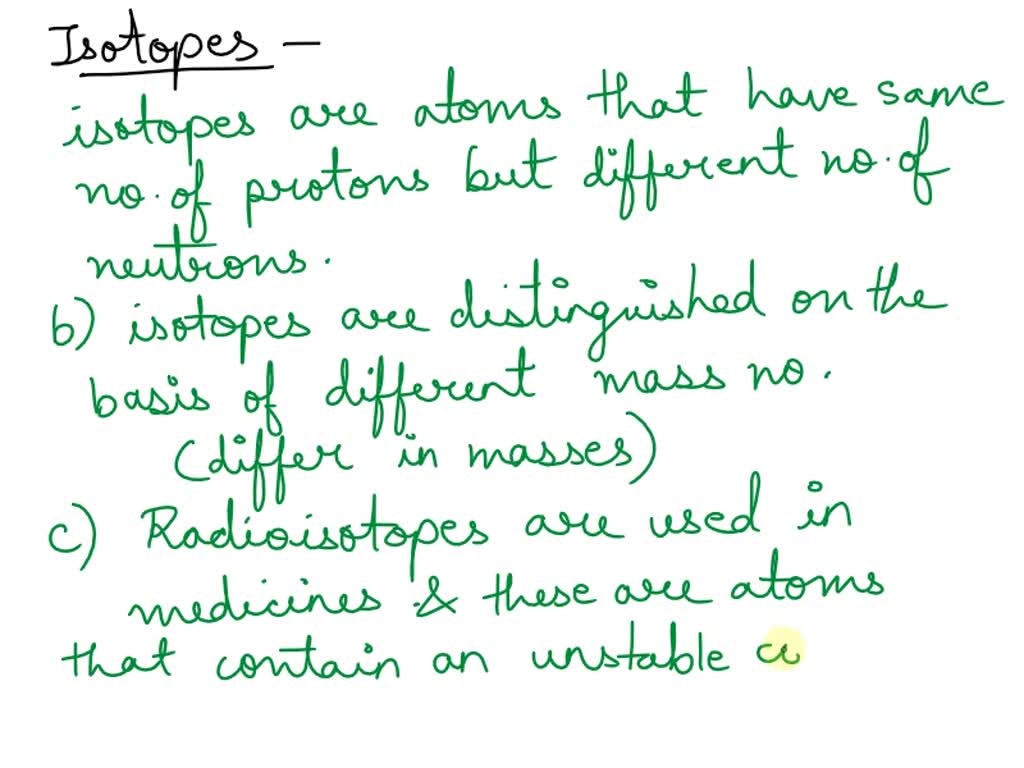 Isotopes —
isotopes are atoms that have same
no. of protons but different no. of
neutrons.
b) isotopes are distinguished on the
basis of different mass no.
(differ in masses)
c) Radioisotopes are used in
medicines & these are atoms
that contain an unstable